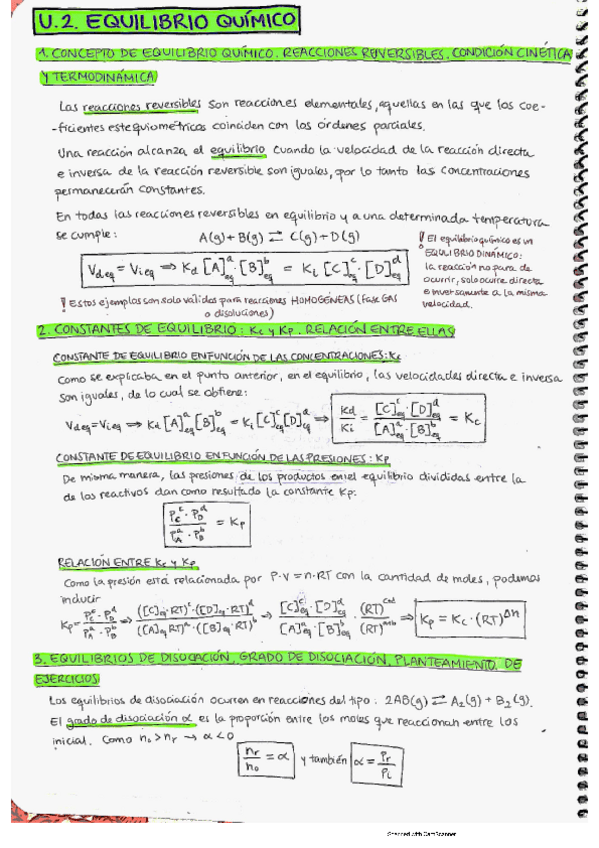 U.2. EQUILIBRIO QUÍMICO
1. CONCEPTO DE EQUILIBRIO QUÍMICO. REACCIONES REVERSIBLES. CONDICIÓN CINÉTICA
Y TERMODINÁMICA
Las reacciones reversibles son reacciones elementales, aquellas en las que los coe-
-ficientes estequiométricos coinciden con los órdenes parciales.
Una reacción alcanza el equilibrio cuando la velocidad de la reacción directa
e inversa de la reacción reversible son iguales, por lo tanto las concentraciones
permanecerán constantes.
En todas las reacciones reversibles en equilibrio y a una determinada temperatura
se cumple: A(g) + B(g) ⇄ C(g) + D(g)
V_deq = V_ieq ⇒ K_d [A]^a · [B]^b = K_i [C]^c · [D]^d
! El equilibrio químico es un
EQUILIBRIO DINÁMICO:
la reacción no para de
ocurrir, solo ocurre directa
e inversamente a la misma
velocidad.
! Estos ejemplos son solo válidos para reacciones HOMOGÉNEAS (Fase GAS
o disoluciones)
2. CONSTANTES DE EQUILIBRIO: Kc y Kp. RELACIÓN ENTRE ELLAS
CONSTANTE DE EQUILIBRIO EN FUNCIÓN DE LAS CONCENTRACIONES: Kc
Como se explicaba en el punto anterior, en el equilibrio, las velocidades directa e inversa
son iguales, de lo cual se obtiene:
V_deq = V_ieq ⇒ K_d [A]^a_eq [B]^b_eq = K_i [C]^c_eq [D]^d_eq ⇒ Kd/Ki = [C]^c_eq · [D]^d_eq / [A]^a_eq · [B]^b_eq = Kc
CONSTANTE DE EQUILIBRIO EN FUNCIÓN DE LAS PRESIONES: Kp
De misma manera, las presiones de los productos en el equilibrio divididas entre la
de los reactivos dan como resultado la constante Kp.
P_C^c · P_D^d / P_A^a · P_B^b = Kp
RELACIÓN ENTRE Kc y Kp
Como la presión está relacionada por P·V = n·RT con la cantidad de moles, podemos
inducir
Kp = P_C^c · P_D^d / P_A^a · P_B^b → ([C]_eq·RT)^c · ([D]_eq·RT)^d / ([A]_eq RT)^a · ([B]_eq·RT)^b → [C]^c_eq · [D]^d_eq / [A]^a_eq · [B]^b_eq · (RT)^c+d / (RT)^a+b ⇒ Kp = Kc · (RT)^Δn
3. EQUILIBRIOS DE DISOCACIÓN, GRADO DE DISOCIACIÓN, PLANTEAMIENTO DE
EJERCICIOS
Los equilibrios de disociación ocurren en reacciones del tipo: 2AB(g) ⇄ A2(g) + B2(g).
El grado de disociación α es la proporción entre los moles que reaccionan entre los
inicial. Como n₀ > nr → α < 0
nr/n₀ = α y también α = Pr/Pi
Scanned with CamScanner